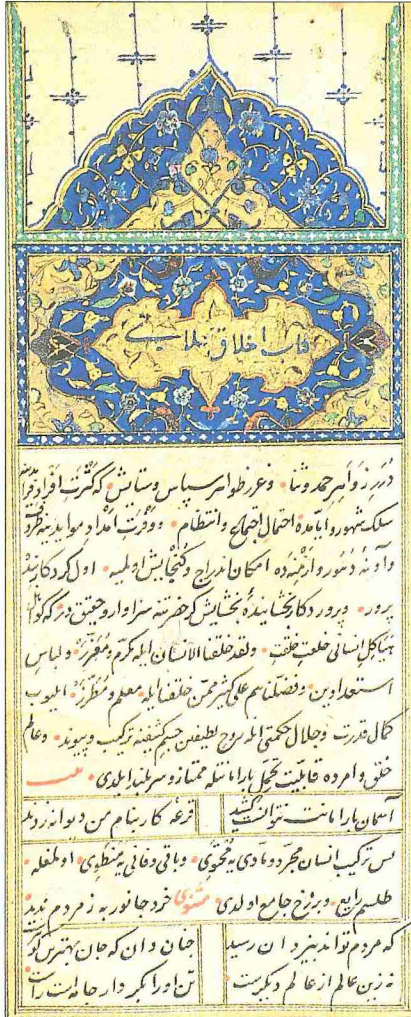 كتاب اخلاق علايى
درر زواهر حمد وثنا وغرر ظواهر سپاس وستايش كه كثرت افراد
سلك شهور و اجتماع وانتظام ووفرت امداد
وآونه دهور وازمنه ده امكان اندراج وگنجايش اولميه اول كردكار بنده
پرور وپروردكار بخشاينده بخشايش كر حضرتنه سزاوار وحقيق در كه
هياكل انسانى خلعت خلقت ولقد خلقنا الانسان ايله مكرم ومعزز ولباس
استعدادين وفضلناهم على كثير ممن خلقنا ايله معلم ومطرز ايليوب
كمال قدرت وجلال حكمتى ايله روح لطيفدن جسم كثيفه تركيب وپيوند وعالم
خلق وامرده قابليت تحمل بار امانتله ممتاز وسربلند ايلدى بيت
آسمان بار امانت نتوانست كشيد قرعه كار بنام من ديوانه زدند
پس تركيب انسان مجرد ومادى يه محتوى وباقى وفانى يه منطوى اولمغله
طلسم رابع وبرزخ جامع اولدى مثنوى خرد جانور به ز مردم نديد
كه مردم تواند بيزدان رسيد جان دان كه جان بهترين گوهرست
نه زين عالم از عالم ديگرست تن او را بكردار جامه است راست